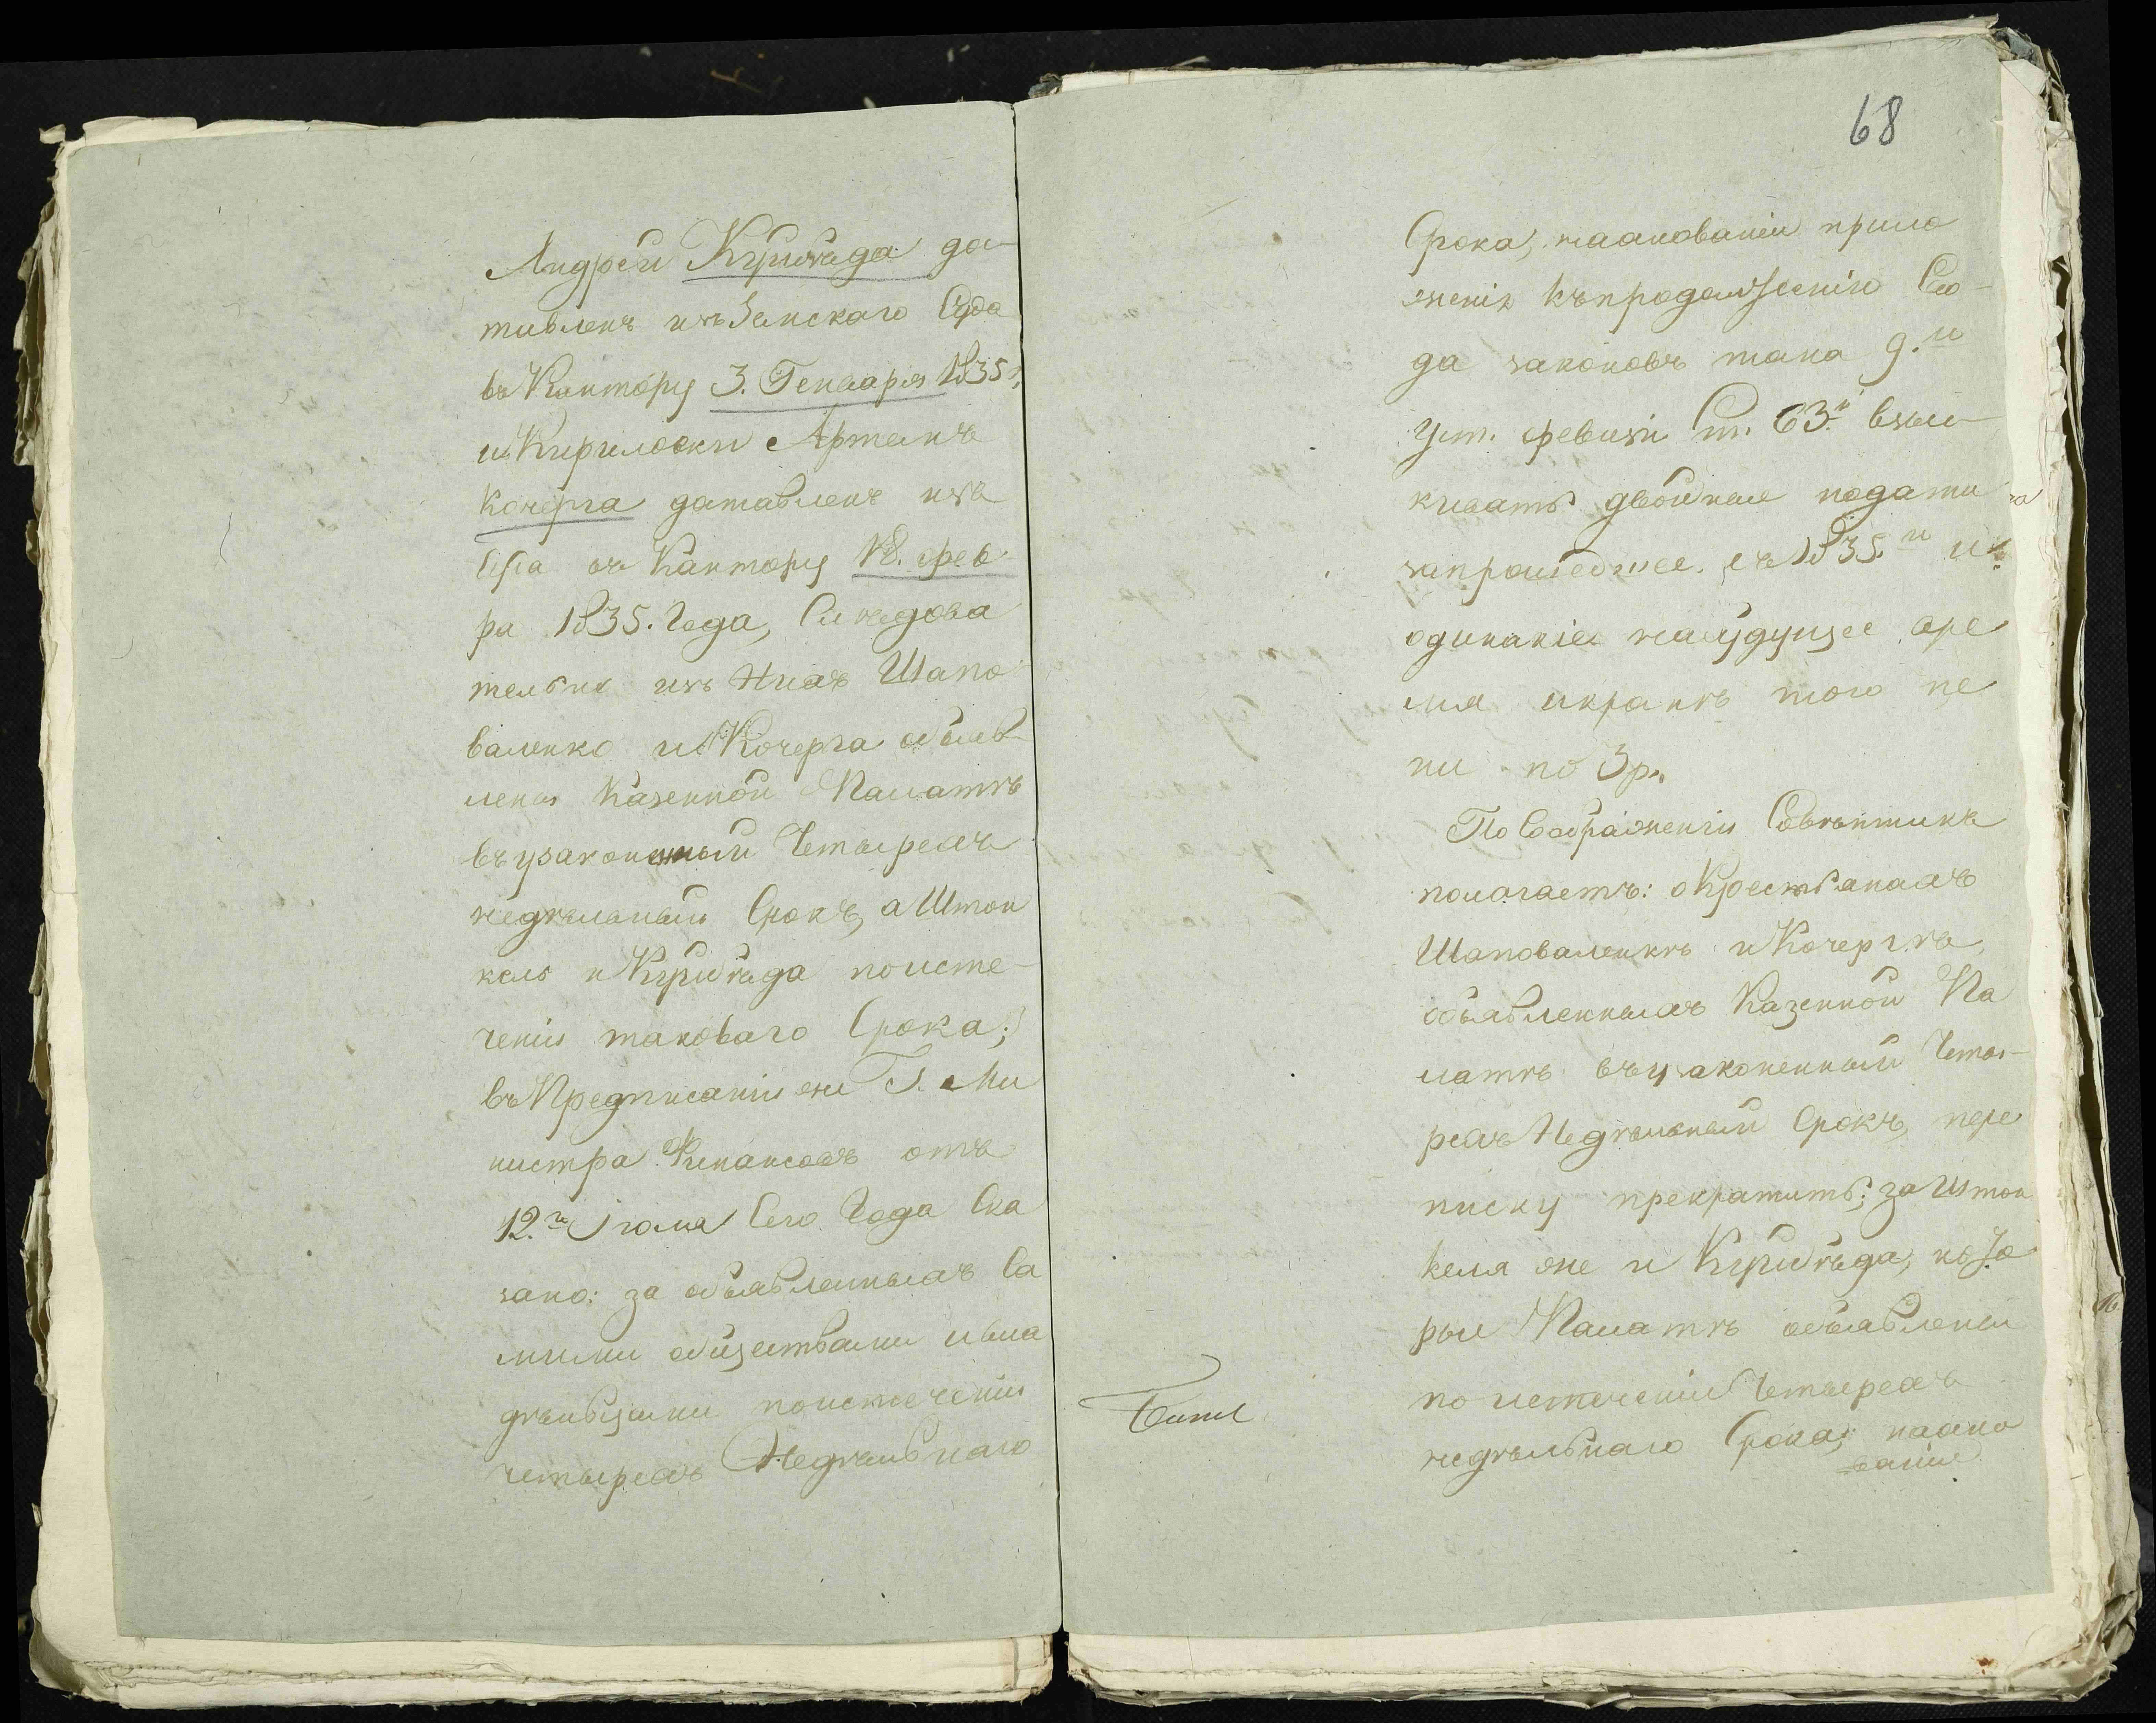 Андрей Курибѣда до
тавленъ изъ Земскаго Суда
въ Контору 3. Генваря 1835,
и Кирилоски Артемъ
Кочерга датавленъ изъ
въ Контору 18. февр
ра 1835. Года, Слѣдова
тельно изъ нихъ Шапо
валенко и Кочерга объяв
лены Казенной Палатѣ
въ узаконенный Четырехъ
недѣльный Срокъ, а Штон
кель и Курибѣда поисте-
ченіи таковаго Срока;
въ Предписаніи же Г. Ми
нистра Финансовъ отъ
12.го Іюля Сего Года Ска
зано: за объявленныхъ Са
мими обществами и вла
дѣльцами поистеченіи
четырехъ Недѣльнаго
68
Срока, наановании прило
женія къ продолженію Сво-
да законовъ тома 9.й
Уст. о ревизіи Ст. 63.й взыс
кивать двойныя подати
запрошедшее съ 1835.го и
одинакіе набудущее вре
мя и кромѣ того пе
ни по 3 р.
По Соображеніи Совѣтникъ
полагаетъ: о Крестьянахъ
Шаповаленкѣ и Кочергѣ,
объявленныхъ Казенной Па
латѣ въ узаконенный Четы-
рехъ Недѣльный Срокъ, пере
писку прекратить; за Штон
келя же и Курибѣда, кото
рые Палатѣ объявлены
по истеченіи Четырехъ
недѣльнаго Срока, наосно
ваніи